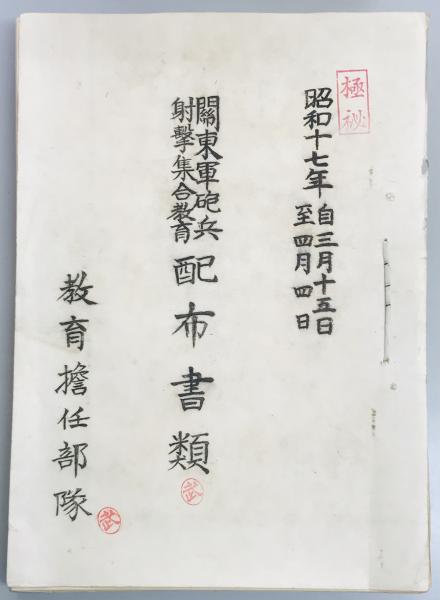 極秘
昭和十七年
自三月十五日
至四月四日
關東軍砲兵
射擊集合教育
配布書類
武
教育擔任部隊
武